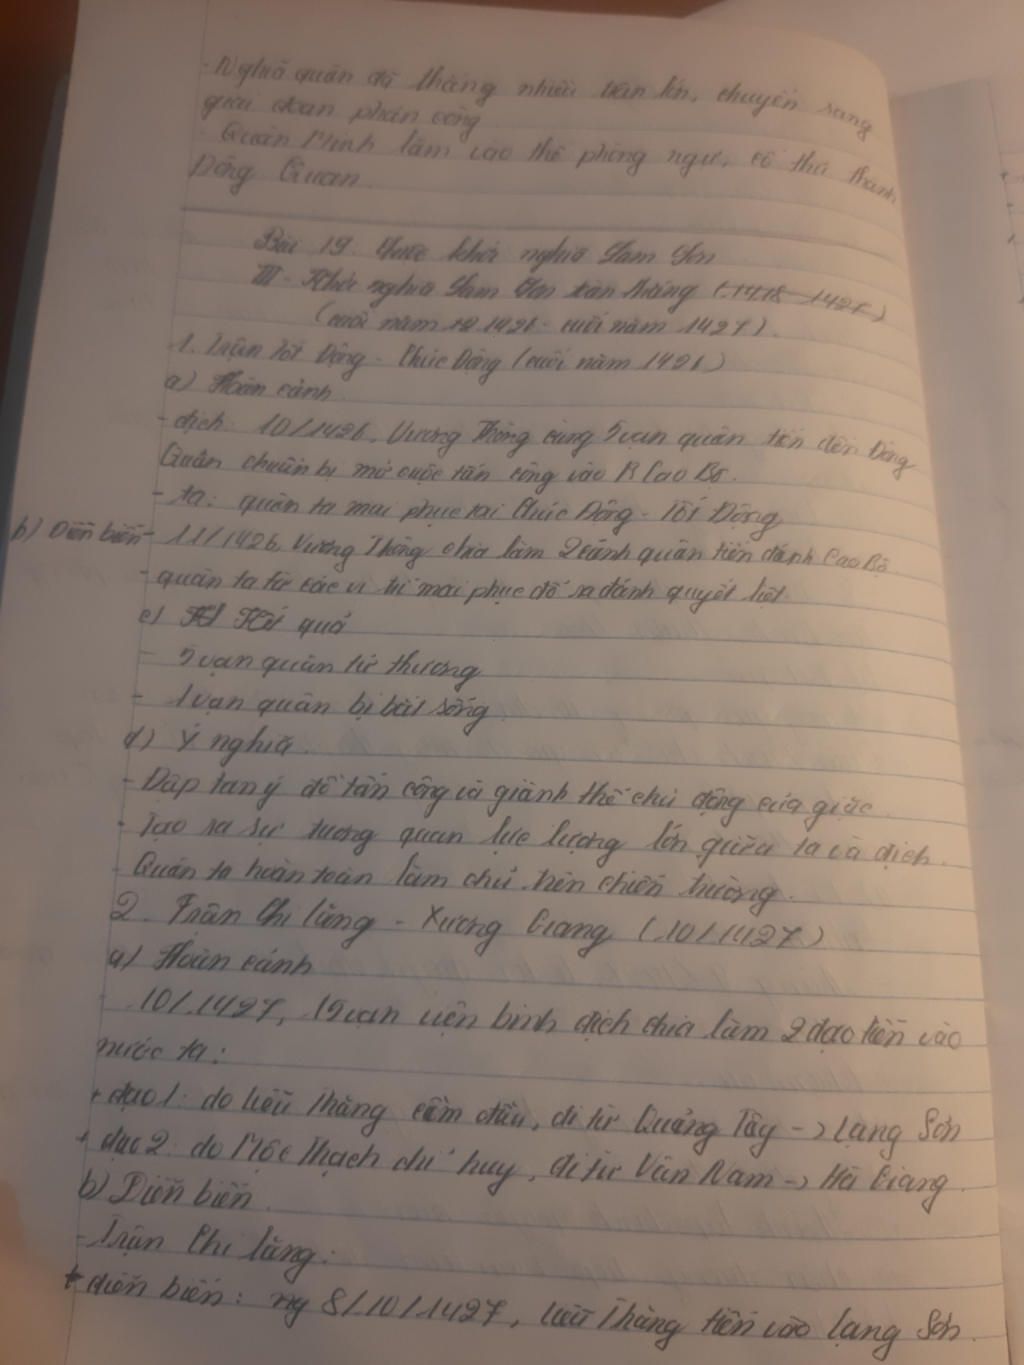 - Nghĩa quân đã thắng nhiều trận lớn, chuyển sang
giai đoạn phản công
- Quân Minh lâm vào thế phòng ngự, cố thủ thành
Đông Quan.
Bài 19: Cuộc khởi nghĩa Lam Sơn
III - Khởi nghĩa Lam Sơn toàn thắng (1418 - 1427)
(cuối năm 1426 - cuối năm 1427).
1. Trận Tốt Động - Chúc Động (cuối năm 1426)
a) Hoàn cảnh.
- địch: 10/1426, Vương Thông cùng 5 vạn quân tiến đến Đông
Quân chuẩn bị mở cuộc tấn công vào Cao Bộ.
- ta: quân ta mai phục tại Chúc Động - Tốt Động
b) Diễn biến - 11/1426, Vương Thông chia làm 2 cánh quân tiến đánh Cao Bộ
- quân ta từ các vị trí mai phục đổ ra đánh quyết liệt.
c) Kết quả
- 5 vạn quân tử thương
- 1 vạn quân bị bắt sống
d) Ý nghĩa.
- Đập tan ý đồ tấn công và giành thế chủ động của giặc.
- Tạo ra sự tương quan lực lượng lớn giữa ta và địch.
- Quân ta hoàn toàn làm chủ trên chiến trường.
2. Trận Chi lăng - Xương Giang (10/1427)
a) Hoàn cảnh
- 10/1427, 15 vạn viện binh địch chia làm 2 đạo tiến vào
nước ta:
+ đạo 1: do liễu Thăng cầm đầu, đi từ Quảng Tây -> Lạng Sơn
+ đạo 2: do Mộc Thạch chỉ huy, đi từ Vân Nam -> Hà Giang.
b) Diễn biến.
- Trận Chi lăng:
+ diễn biến: ng 8/10/1427, liễu Thăng tiến vào lạng Sơn.